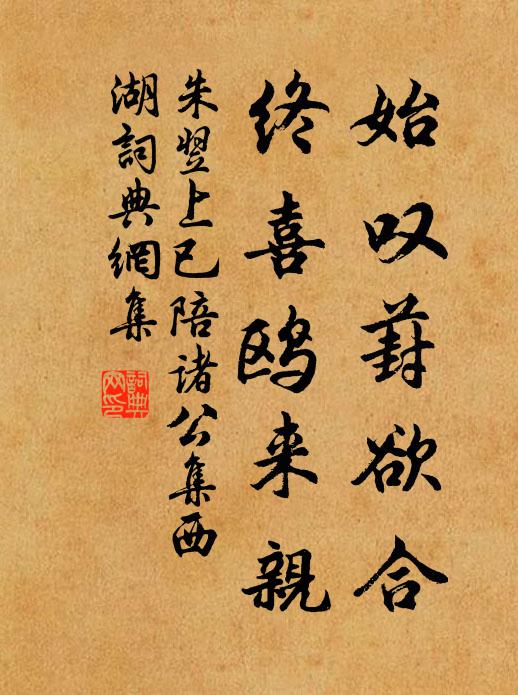 始叹葑欲合
终喜鸥来親
朱翌上巳陪诸公集西
湖詞典網集
詞典
网印